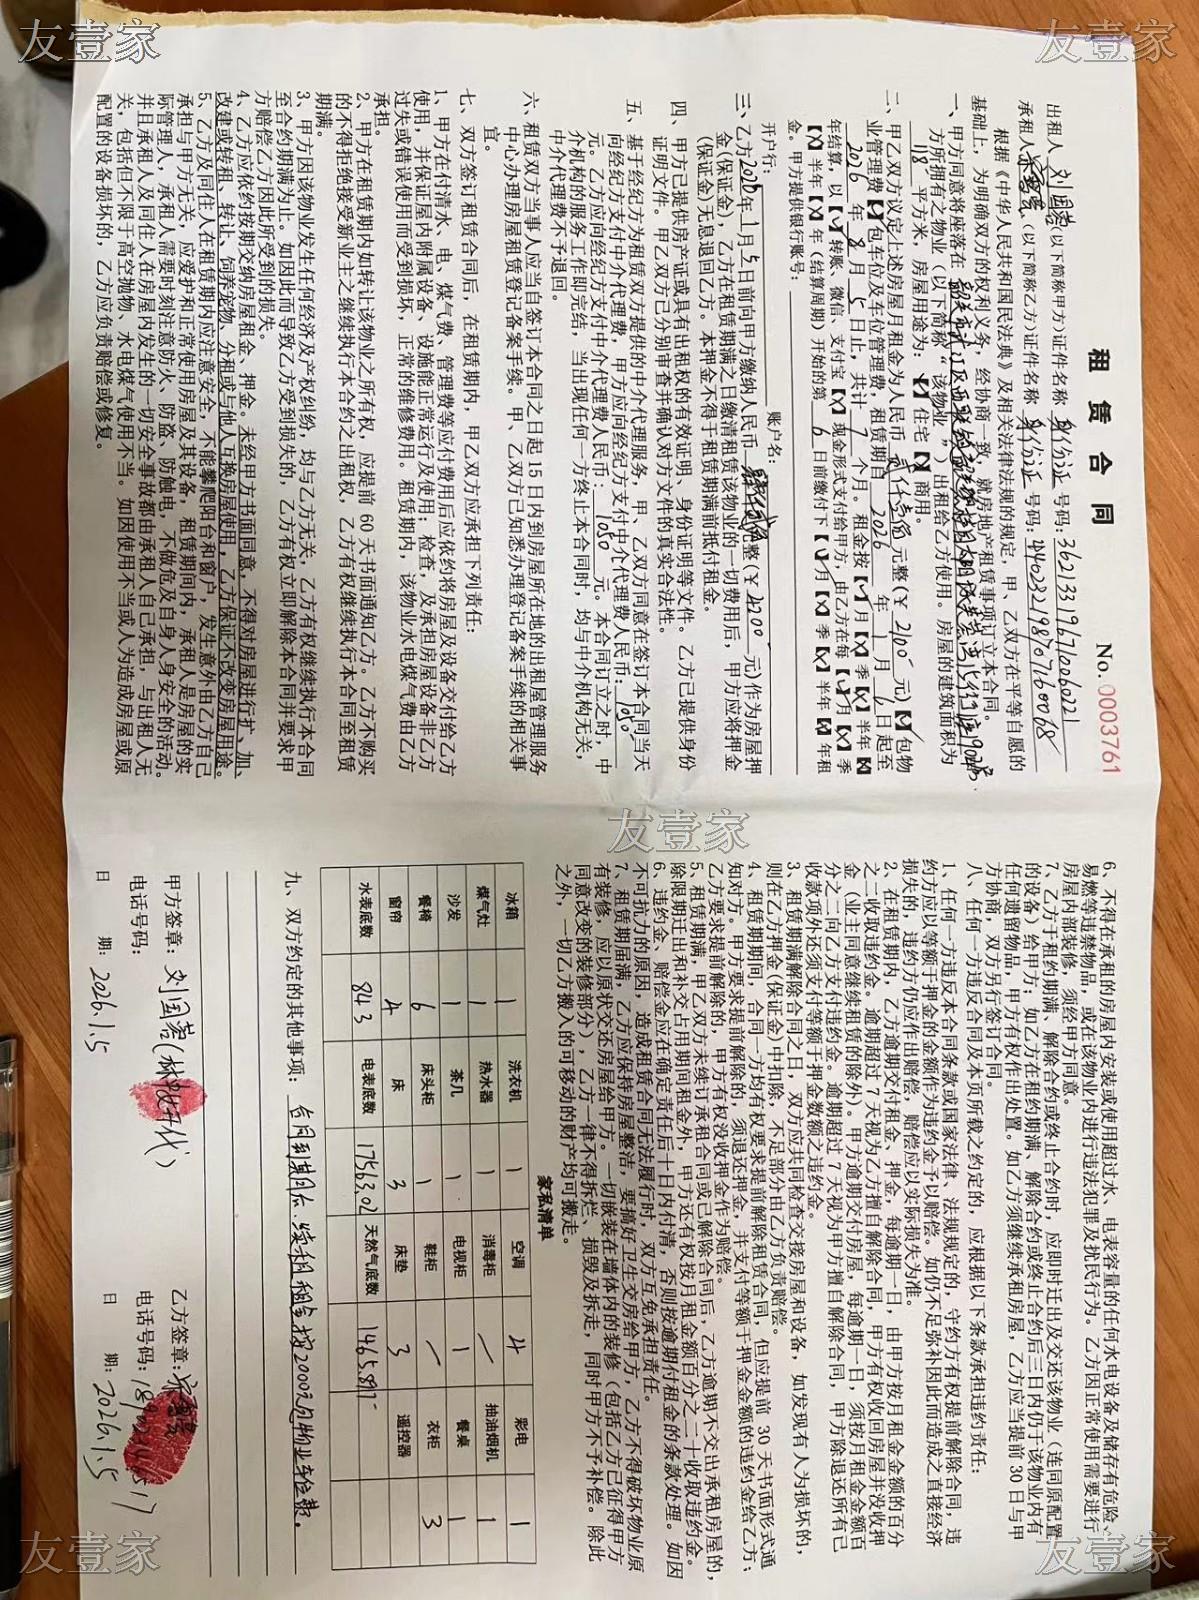 租赁合同
No. 0003761
出租人 刘国蓉(以下简称甲方)证件名称 身份证 号码:362133196710060021
承租人(以下简称乙方)证件名称 身份证 号码:
根据《中华人民共和国民法典》及相关法律法规的规定，甲、乙双方在平等自愿的
基础上，为明确双方的权利义务，经协商一致，就房地产租赁事项订立本合同。
一、甲方同意将座落在
方所拥有之物业（以下简称“该物业”）出租给乙方使用。房屋的建筑面积为
118 平方米，房屋用途为：【】住宅【】商用。
二、甲乙双方议定上述房屋月租金为人民币 贰仟壹佰 元整(￥2100 元)【】包物
业管理费【】包车位及车位管理费，租赁期自 2026 年 1 月 6 日起至
2026 年 8 月 5 日止，共计 7 个月。租金按【】月【】季【】半年【】年租
年结算，以【】转账、微信、支付宝【】现金形式支付给甲方，由乙方在每【】月【】季
【】半年【】年（结算周期）开始的第 6 日前缴付下【】月【】季【】半年【】年租
金。甲方提供银行账号：
开户行： 账户名：
三、乙方2026年1月5日前向甲方缴纳人民币 整(￥4200 元)作为房屋押
金(保证金)，乙方在租赁期满之日缴清租赁该物业的一切费用后，甲方应将押金
(保证金)无息退回乙方。本押金不得于租赁期满前抵付租金。
四、甲方已提供房产证或具有出租权的有效证明、身份证明等文件。乙方已提供身份
证明文件。甲乙双方已分别审查并确认对方文件的真实合法性。
五、基于经纪方为租赁双方提供的中介代理服务，甲、乙双方同意在签订本合同当天
向经纪方支付中介代理费，甲方应向经纪方支付中介代理费人民币：1050
元。乙方应向经纪方支付中介代理费人民币：1050 元。本合同订立之时，中
介机构的服务工作即完结，当出现任何一方终止本合同时，均与中介机构无关，
中介代理费不予退回。
六、租赁双方当事人应当自签订本合同之日起15日内到房屋所在地的出租屋管理服务
中心办理房屋租赁登记备案手续。甲、乙双方已知悉办理登记备案手续的相关事
宜。
七、双方签订租赁合同后，在租赁期内，甲乙双方应承担下列责任：
1、甲方在付清水、电、煤气费、管理费等应付费用后应依约将房屋及设备交付给乙方
使用，并保证屋内附属设备、设施能正常运行及使用；检查，及承担房屋设备非乙方
过失或错误使用而受到损坏，正常的维修费用。租赁期内，该物业水电煤气费由乙方
承担。
2、甲方在租赁期内如转让该物业之所有权，应提前60天书面通知乙方。乙方不购买
的不得拒绝接受新业主之继续执行本合约之出租权，乙方有权继续执行本合同至租赁
期满。
3、甲方因该物业发生任何经济及产权纠纷，均与乙方无关，乙方有权继续执行本合同
至合约期满为止。如因此而导致乙方受到损失的，乙方有权立即解除本合同并要求甲
方赔偿乙方因此所受到的损失。
4、乙方应依约按期交纳房屋租金，押金。未经甲方书面同意，不得对房屋进行扩、加、
改建或转租、转让、饲养宠物、分租或与他人互换房屋使用，乙方保证不改变房屋用途。
5、乙方及同住人在租赁期内应注意安全，不能攀爬阳台和窗户，发生意外由乙方自己
承担与甲方无关，应爱护和正常使用房屋及其设备，租赁期间内，承租人是房屋的实
际管理人，承租人需要时刻注意防火、防盗、防触电，不做危及自身人身安全的活动。
并且承租人及同住人在房屋内发生的一切安全事故都由承租人自己承担，与出租人无
关，包括但不限于高空抛物、水电煤气使用不当。如因使用不当或人为造成房屋或原
配置的设备损坏的，乙方应负责赔偿或修复。
6、不得在承租的房屋内安装或使用超过水、电表容量的任何水电设备及储存有危险、
易燃等违禁物品，或在该物业内进行违法犯罪及扰民行为。乙方因正常使用需要进行
房屋内部装修，须经甲方同意。
7、乙方于租约期满、解除合约或终止合约时，应即时迁出及交还该物业（连同原配置
的设备）给甲方；如乙方在租约期满、解除合约或终止合约后三日内仍于该物业内有
任何遗留物品，甲方有权作出处置。如乙方须继续承租房屋，乙方应当提前30日与甲
方协商，双方另行签订合同。
八、任何一方违反合同及本页所载之约定的，应根据以下条款承担违约责任：
1、任何一方违反本合同条款或国家法律、法规规定的，守约方有权提前解除合同，违
约方应以等额于押金的金额作为违约金予以赔偿。如仍不足弥补因此而造成之直接经济
损失的，违约方仍应作出赔偿，赔偿应以实际损失为准。
2、在租赁期内，乙方逾期交付租金、押金，每逾期一日，由甲方按月租金金额的百分
之二收取违约金。逾期超过7天视为乙方擅自解除合同，甲方有权收回房屋并没收押
金（业主同意继续租赁的除外）。甲方逾期交付房屋，每逾期一日，须按月租金金额百
分之二向乙方支付违约金。逾期超过7天视为甲方擅自解除合同，甲方除退还所有已
收款项外还须支付等额于押金数额之违约金。
3、租赁期满解除合同之日，双方应共同检查交接房屋和设备，如发现有人为损坏的，
则在乙方押金（保证金）中扣除，不足部分由乙方负责赔偿。
4、租赁期期间，合同一方均有权要求提前解除租赁合同，但应提前30天书面形式通
知对方。甲方要求提前解除的，须退还押金，并支付等额于押金金额的违约金给乙方；
乙方要求提前解除的，甲方有权没收押金作为赔偿。
5、租赁期满，甲乙双方未续订承租合同或已解除合同后，乙方逾期不交出承租房屋的，
除限期迁出和补交占用期间租金外，甲方还有权按月租金额百分之二十收取违约金。
6、违约金、赔偿金应在确定责任后十日内付清，否则按逾期付租金的条款处理。如因
不可抗力的原因，造成租赁合同无法履行时，双方互免承担责任。
7、租赁期届满，乙方应保持房屋整洁，要搞好卫生交房给甲方，乙方不得破坏物业原
有装修，应以原状交还房屋给甲方。一切嵌装在墙体内的装修（包括乙方已征得甲方
同意改变的装修部分），乙方一律不得拆烂、损毁及拆走，同时甲方不予补偿。除此
之外，一切乙方搬入的可移动的财产均可搬走。
家私清单
冰箱 1 洗衣机 1 空调 4 彩电 1
煤气灶 1 热水器 1 消毒柜 / 抽油烟机 1
沙发 1 茶几 1 电视柜 1 餐桌 1
餐椅 6 床头柜 1 鞋柜 / 衣柜 3
窗帘 4 床 3 床垫 3 遥控器
水表底数 843 电表底数 17563.02 天然气底数
九、双方约定的其他事项：合同到期后，续租租金按2000元包物业车位费。
甲方签章：刘国蓉 代)
电话号码：
日 期：2026.1.5
乙方签章：
电话号码：
日 期：2026.1.5
友壹家
友壹家
友壹家
友壹家
友壹家